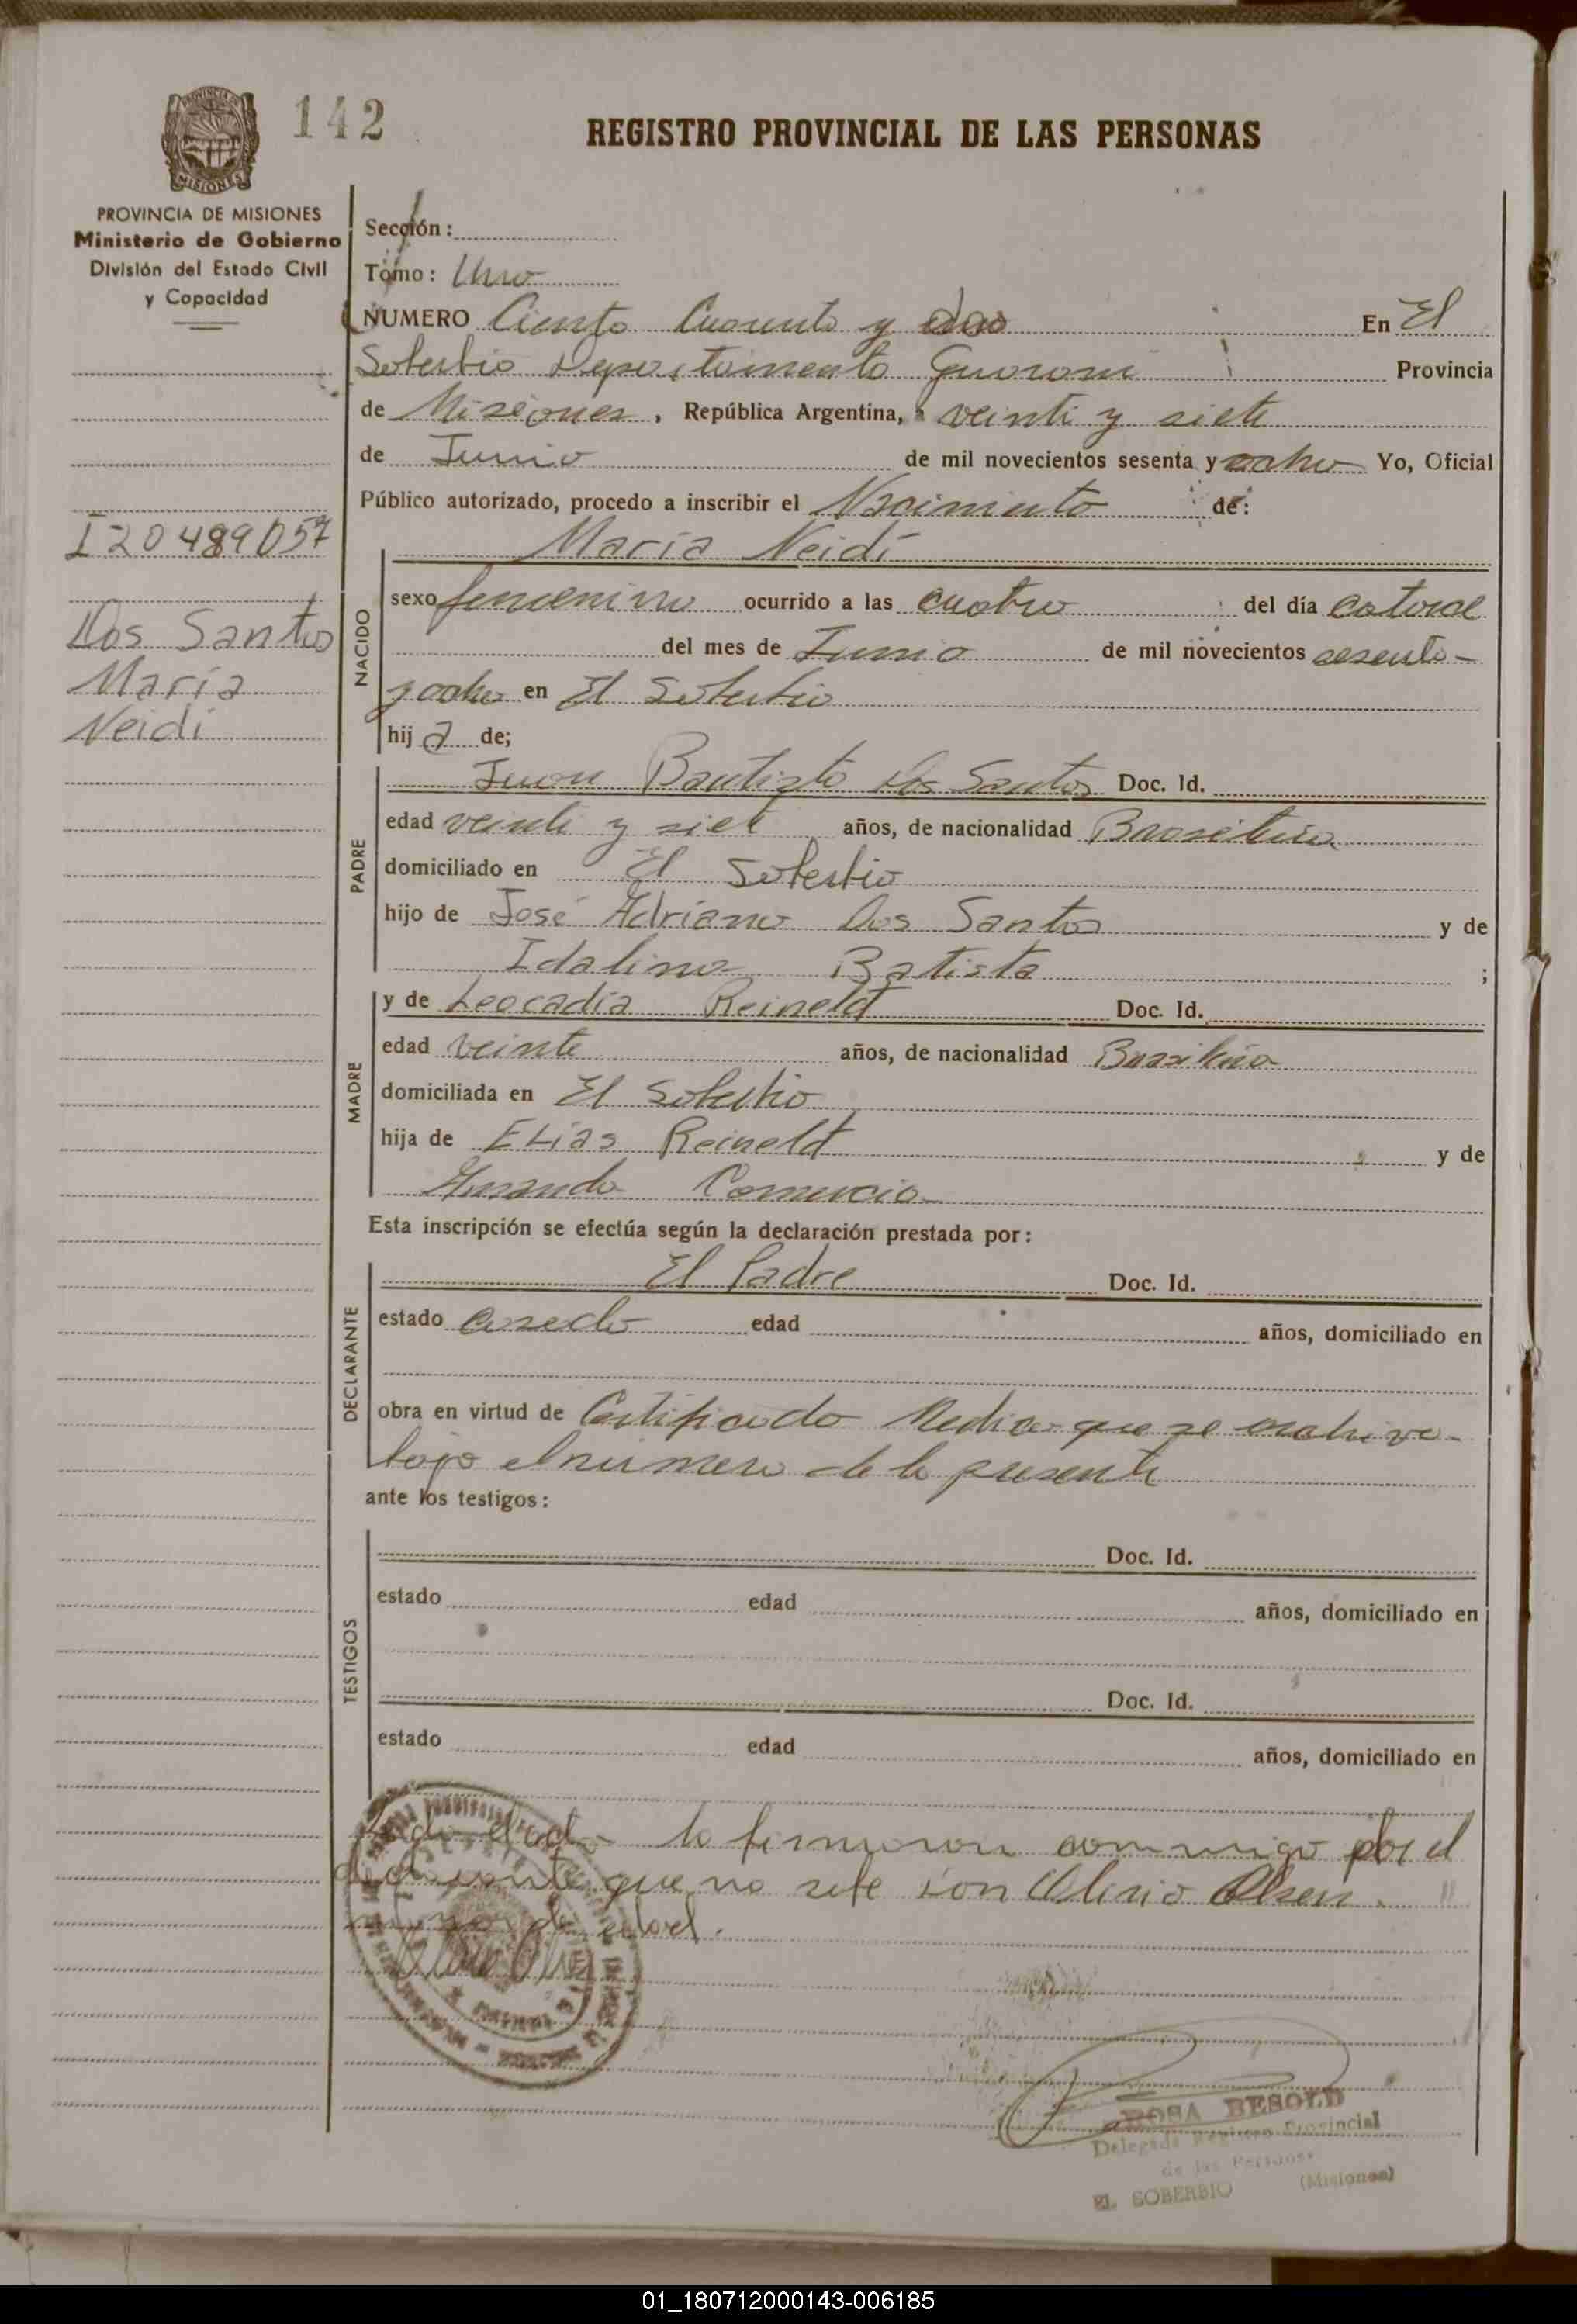 142
REGISTRO PROVINCIAL DE LAS PERSONAS
PROVINCIA DE MISIONES
Ministerio de Gobierno
División del Estado Civil
y Capacidad
I 20489057
Dos Santos
María
Neidi
Sección:
Tomo: Uno
NUMERO Ciento Cuarenta y dos En El
Soberbio Departamento Guarani Provincia
de Misiones, República Argentina, a veinti y siete
de Junio de mil novecientos sesenta y ocho Yo, Oficial
Público autorizado, procedo a inscribir el Nacimiento de:
María Neidi
NACIDO
sexo femenino ocurrido a las cuatro del día catorce
del mes de Junio de mil novecientos sesenta
y ocho en El Soberbio
hija de;
PADRE
Juan Bautista Dos Santos Doc. Id.
edad veinti y siete años, de nacionalidad Brasileira
domiciliado en El Soberbio
hijo de José Adriano Dos Santos y de
Idalina Batista ;
MADRE
y de Leocadia Reineld Doc. Id.
edad veinte años, de nacionalidad Brasileira
domiciliada en El Soberbio
hija de Elias Reineld y de
Doc. Id.
Esta inscripción se efectúa según la declaración prestada por:
DECLARANTE
El Padre Doc. Id.
estado casado edad años, domiciliado en
obra en virtud de Certificado Medico que se archiva
bajo el numero de la presente
ante los testigos:
TESTIGOS
Doc. Id.
estado edad años, domiciliado en
Doc. Id.
estado edad años, domiciliado en
la firmaron conmigo por el
declarante que no sabe Olsen.
de edad.
ROSA BESOLD
Delegada Registro Provincial
de las Personas
EL SOBERBIO (Misiones)
01_180712000143-006185